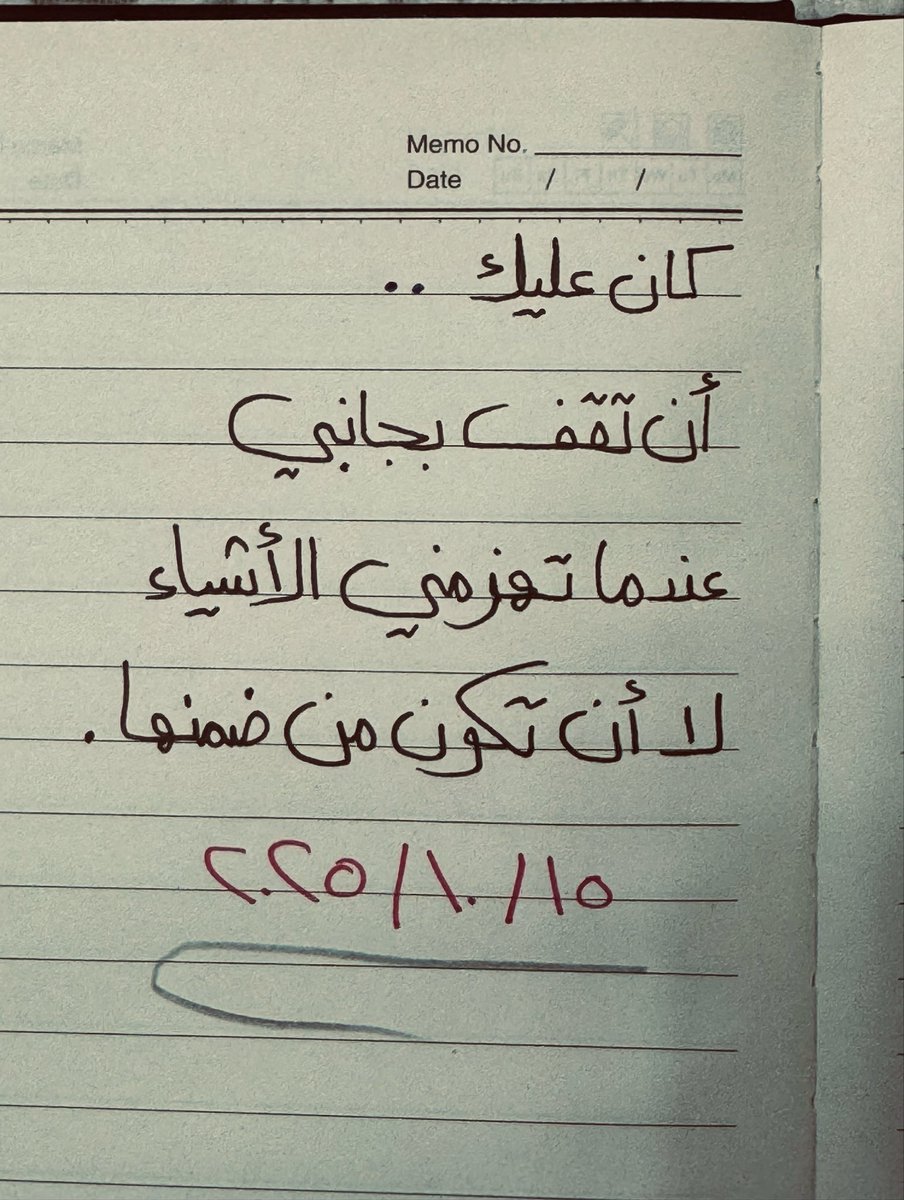 Memo No.
Date / /
كان عليك ..
أن تقف بجانبي
عندما تهزمني الأشياء
لا أن تكون من ضمنها.
١٥/١٠/٢٠٢٥